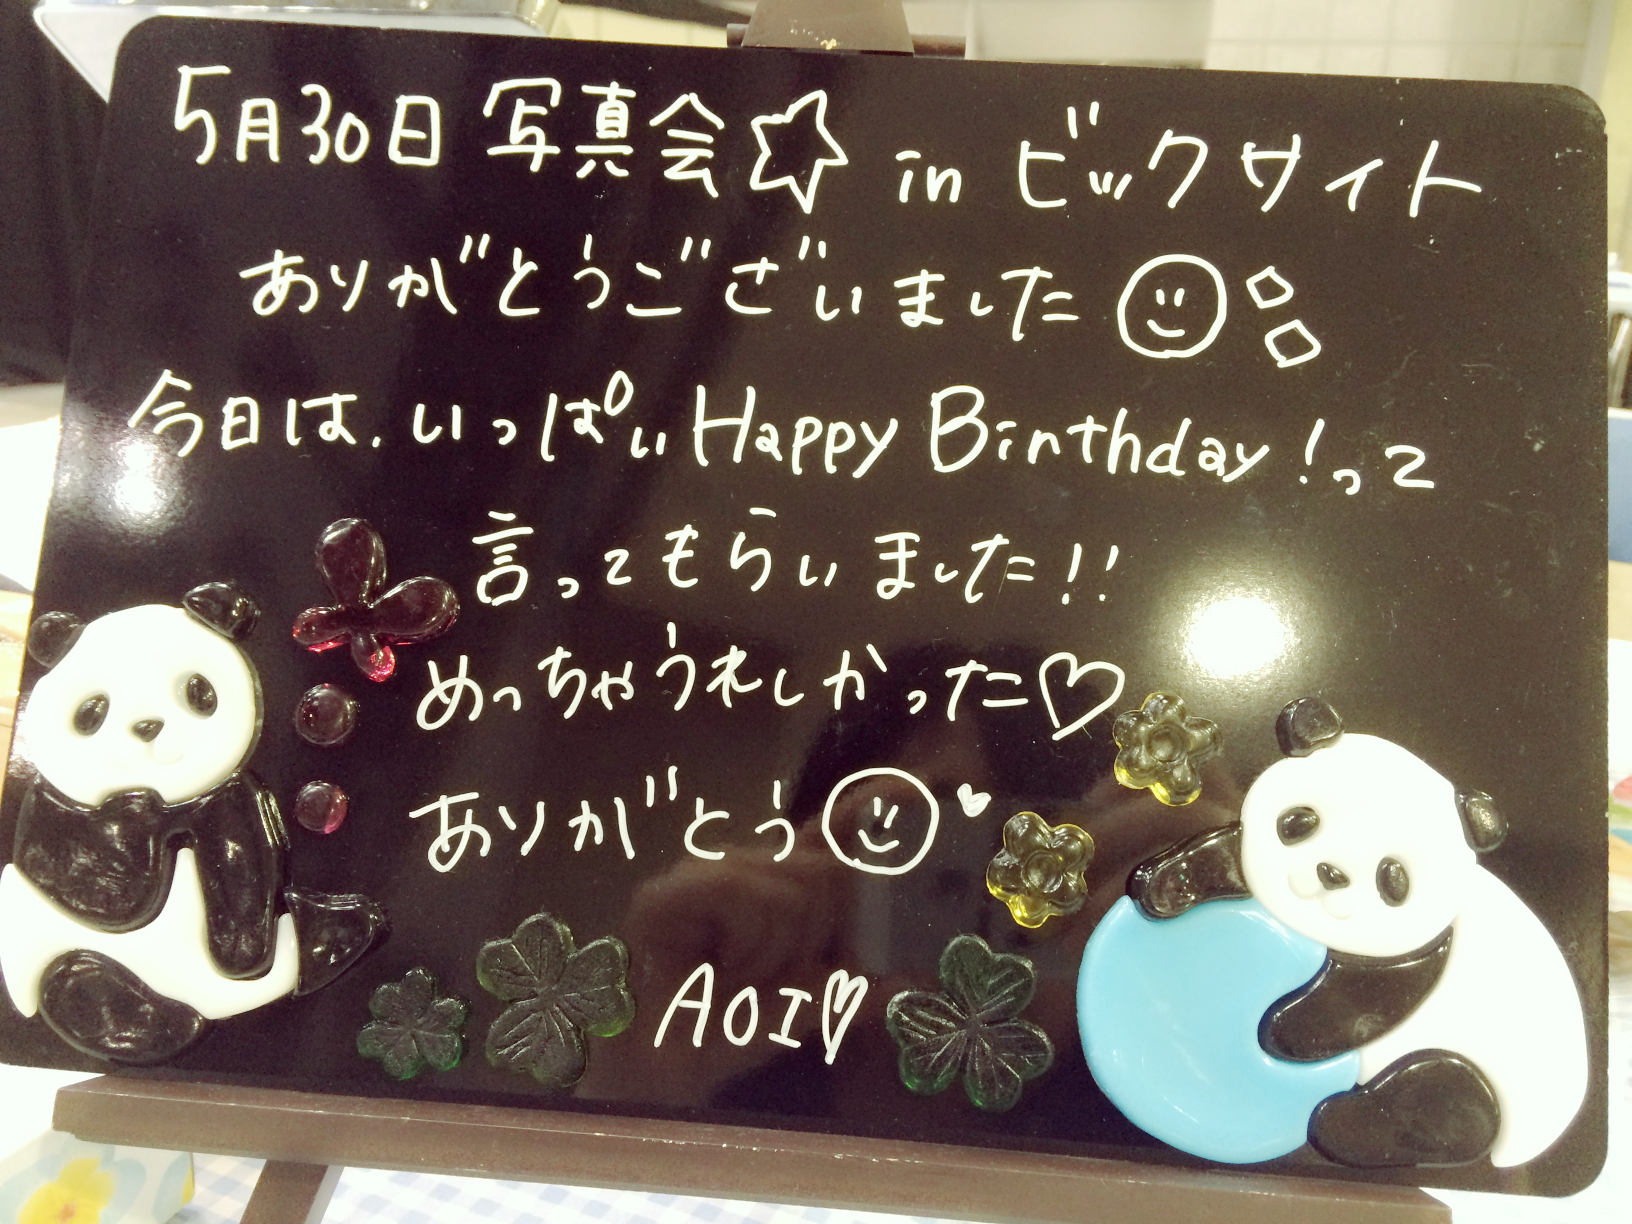 5月30日 写真会☆ in ビックサイト
ありがとうございました
今日は、いっぱい Happy Birthday!って
言ってもらいました!!
めっちゃうれしかった♡
ありがとう
AOI♡